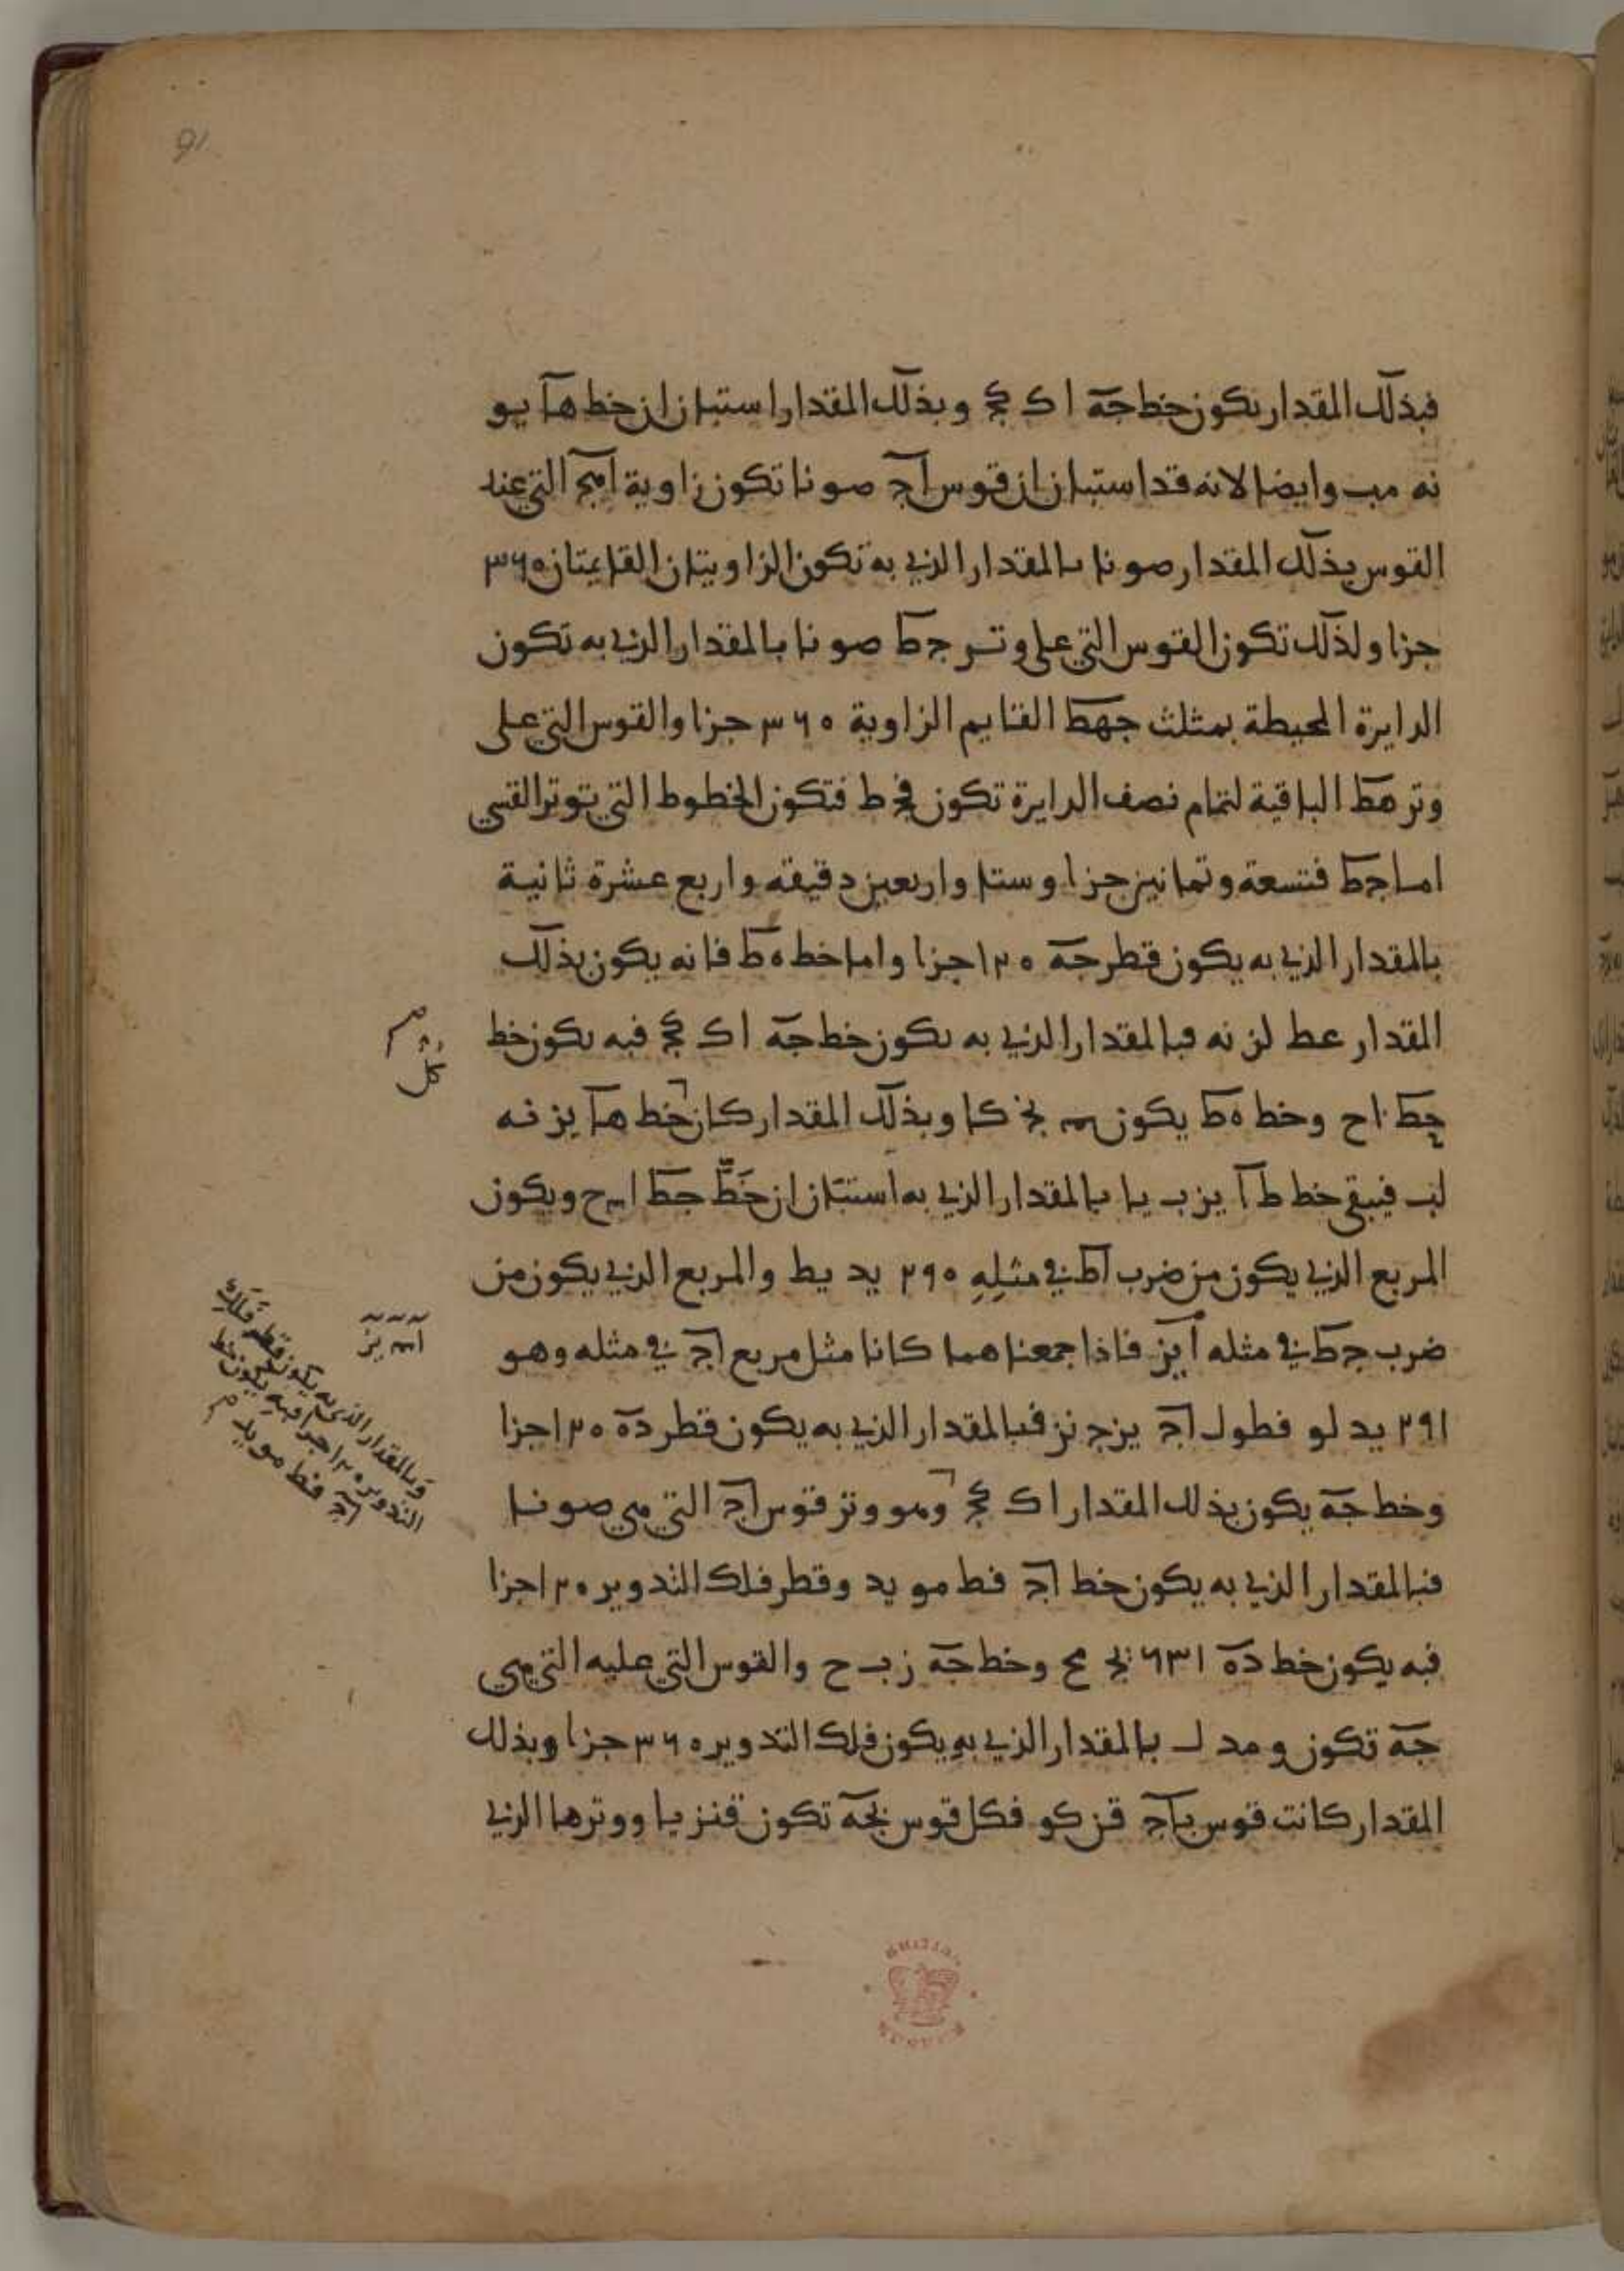 91
فبذلك المقدار يكون خط جه ا ك كج وبذلك المقدار استبان ان خط ها يو
نه مب وايضا لانه قد استبان ان قوس اج صو نا تكون زاوية اهج التي عند
القوس بذلك المقدار صو نا بالمقدار الذي به تكون الزاويتان القايمتان ٣٦٠
جزا ولذلك تكون القوس التي على وتر جط صو نا بالمقدار الذي به تكون
الدايرة المحيطة بمثلث جهط القايم الزاوية ٣٦٠ جزا والقوس التي على
وتر هط الباقية لتمام نصف الدايرة تكون فج ط فتكون الخطوط التي توتر القسي
اما جط فتسعة وثمانين جزا وستا واربعين دقيقه واربع عشرة ثانية
بالمقدار الذي به يكون قطر جه ١٢٠ جزا واما خط هط فانه يكون بذلك
المقدار عط لز نه فبالمقدار الذي به يكون خط جه ا ك كج فبه يكون خط
جط ا ح وخط هط يكون نج كا وبذلك المقدار كان خط ها يز نه
لب فيبقى خط طا يز ب يا بالمقدار الذي به استبان ان خط جط ا ح ويكون
المربع الذي يكون من ضرب اط في مثله ٢٩٠ يد يط والمربع الذي يكون من
ضرب جط في مثله ا يز فاذا جمعناهما كانا مثل مربع اج في مثله وهو
٢٩١ يد لو فطول اج يز ج نز فبالمقدار الذي به يكون قطر ده ١٢٠ جزا
وخط جه يكون بذلك المقدار ا ك كج وهو وتر قوس اج التي هي صو نا
فبالمقدار الذي به يكون خط اج فط مو يد وقطر فلك التدوير ١٢٠ جزا
فبه يكون خط ده ٦٣١ يج مح وخط جه ز ب ح والقوس التي عليه التي هي
جه تكون و مد ل بالمقدار الذي به يكون فلك التدوير ٣٦٠ جزا وبذلك
المقدار كانت قوس باج قز كو فكل قوس بجه تكون قنز يا ووترها الذي
وبالمقدار الذي به يكون قطر فلك
التدوير ١٢٠ جزا فبه يكون خط
اج فط مو يد